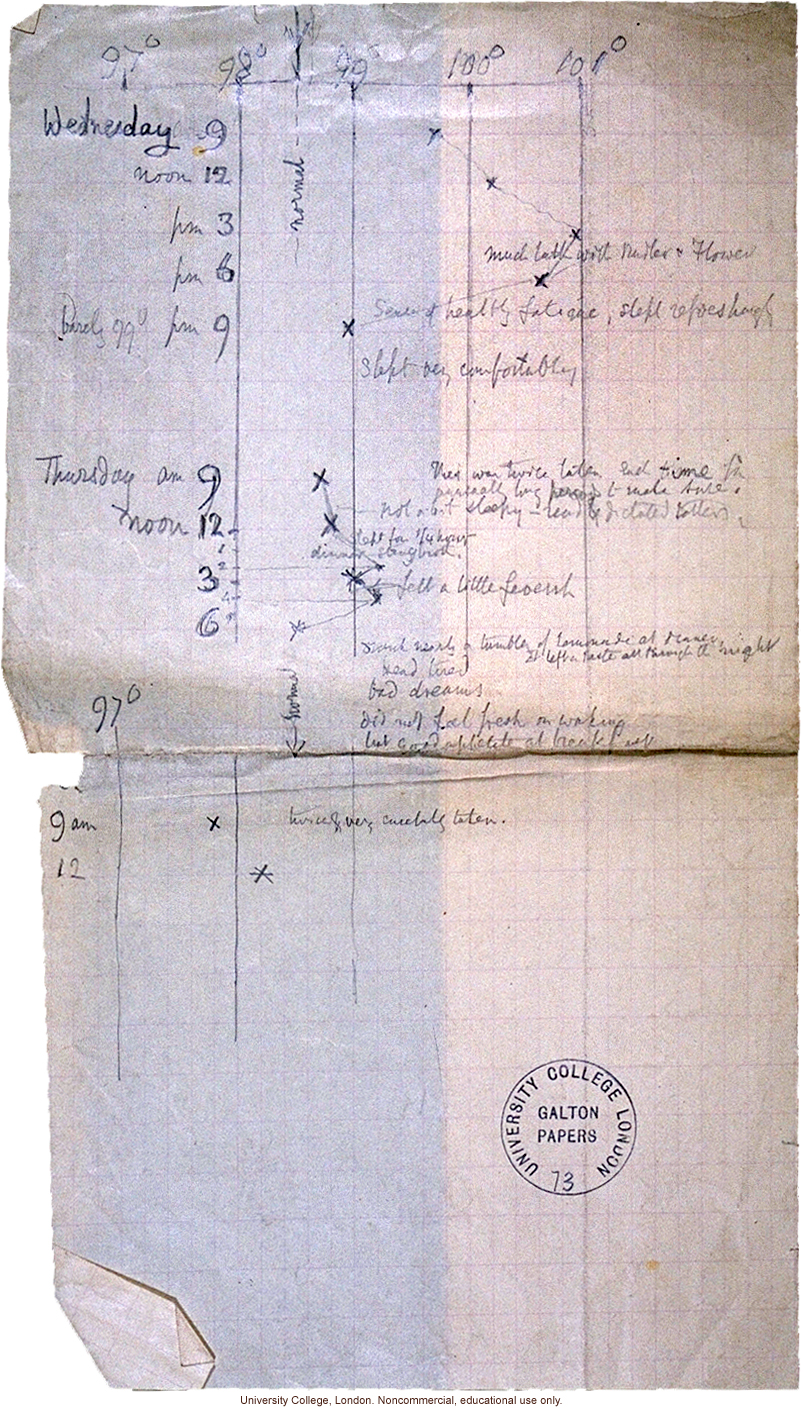 97° 98° 99° 100° 101°
normal
Wednesday 9
noon 12
pm 3
much talk with Butler & Flower
pm 6
Sense of healthy fatigue, slept refreshingly
Barely 99° pm 9
Slept very comfortably
Thursday am 9
This was twice taken 2nd time for
to make sure.
noon 12
not a bit sleepy – read & dictated letters
1
slept for 1/4 hour
dinner
2
3
felt a little feverish
4
6
drank nearly a tumbler of lemonade at dinner
it left a taste all through the night
head tired
bad dreams
normal
97°
did not feel fresh on waking
but good appetite at breakfast
9 am
twice & very carefully taken.
12
UNIVERSITY COLLEGE LONDON
GALTON
PAPERS
73
University College, London. Noncommercial, educational use only.